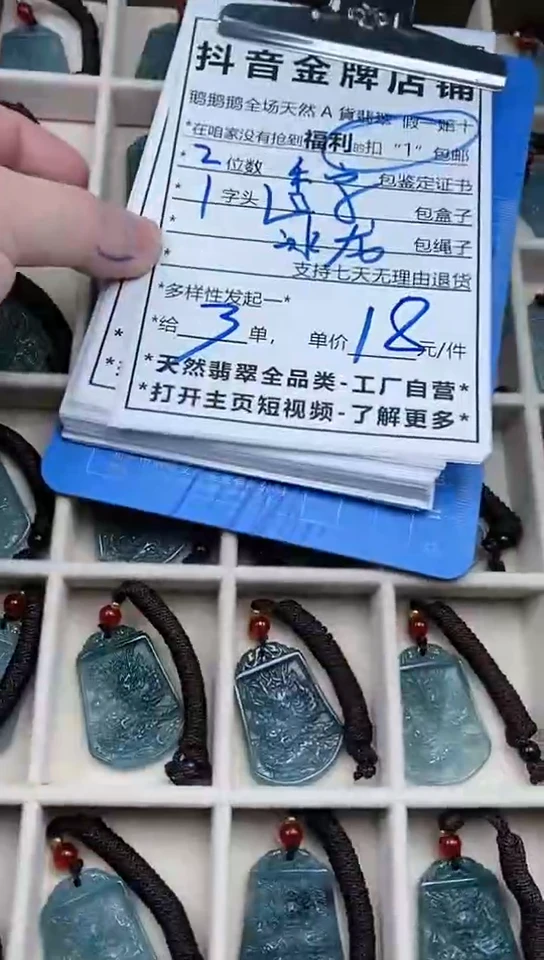 抖音金牌店铺
鹅鹅鹅全场天然A貨翡翠 假一赔十
*在咱家没有抢到福利的扣“1”包邮
* 2 位数 包鉴定证书
* 1 字头 包盒子
* 冰龙 包绳子
* 支持七天无理由退货
*多样性发起一*
*给 3 单, 单价 18 元/件
*天然翡翠全品类-工厂自营*
*打开主页短视频-了解更多*